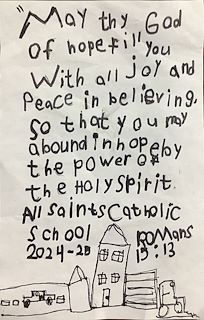 "May thy God
of hope fill you
With all joy and
Peace in believing,
So that you may
abound in hope by
the power of
the Holy Spirit.
All Saints Catholic
School Romans
2024-25 15:13